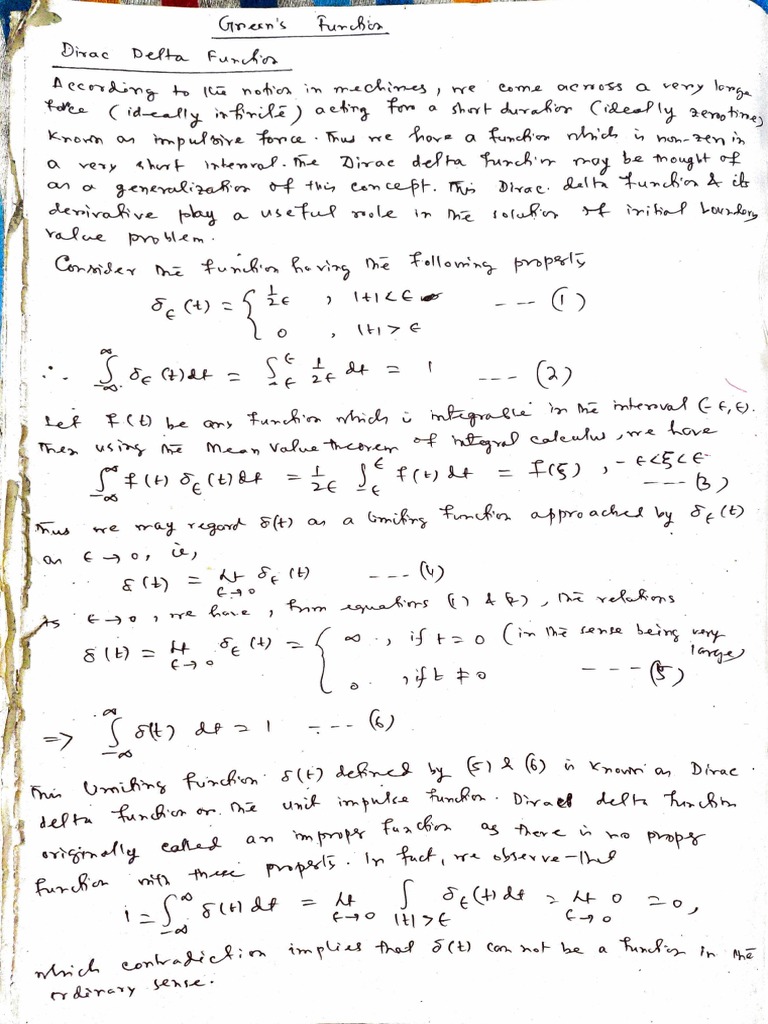 Green's Function
Dirac Delta Function
According to the notion in mechines, we come across a very large
force (ideally infinite) acting for a short duration (ideally zero time)
known as impulsive force. Thus we have a function which is non-zero in
a very short interval. The Dirac delta function may be thought of
as a generalization of this concept. This Dirac. delta function & its
derivative play a useful role in the solution of initial boundary
value problem.
Consider the function having the following property
δ_ϵ(t) = { 1/2ϵ , |t| < ϵ --- (1)
0 , |t| > ϵ
∴ ∫_{-∞}^{∞} δ_ϵ(t) dt = ∫_{-ϵ}^{ϵ} 1/2ϵ dt = 1 --- (2)
Let f(t) be any function which is integrable in the interval (-ϵ, ϵ).
Then using the Mean value theorem of integral calculus, we have
∫_{-∞}^{∞} f(t) δ_ϵ(t) dt = 1/2ϵ ∫_{-ϵ}^{ϵ} f(t) dt = f(ξ) , -ϵ < ξ < ϵ
--- (3)
Thus we may regard δ(t) as a limiting function approached by δ_ϵ(t)
as ϵ → 0, ie,
δ(t) = Lt_{ϵ→0} δ_ϵ(t) --- (4)
As ϵ → 0, we have, from equations (1) & (2), the relations
δ(t) = Lt_{ϵ→0} δ_ϵ(t) = { ∞ , if t = 0 (in the sense being very large)
0 , if t ≠ 0 --- (5)
=> ∫_{-∞}^{∞} δ(t) dt = 1 --- (6)
This limiting function δ(t) defined by (5) & (6) is known as Dirac
delta function or the unit impulse function. Dirac delta function
originally called an improper function as there is no proper
function with these property. In fact, we observe that
1 = ∫_{-∞}^{∞} δ(t) dt = Lt_{ϵ→0} ∫_{|t|>ϵ} δ_ϵ(t) dt = Lt_{ϵ→0} 0 = 0,
which contradiction implies that δ(t) can not be a function in the
ordinary sense.